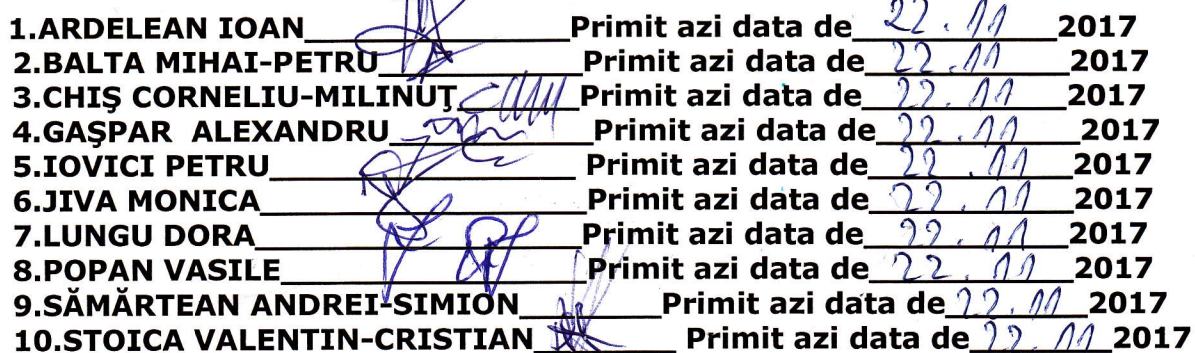 1.ARDELEAN IOAN____________________Primit azi data de 22.11 2017
2.BALTA MIHAI-PETRU________________Primit azi data de 22.11 2017
3.CHIŞ CORNELIU-MILINUŢ_________Primit azi data de 22.11 2017
4.GAŞPAR ALEXANDRU_______________Primit azi data de 22.11 2017
5.IOVICI PETRU_______________________ Primit azi data de 22.11 2017
6.JIVA MONICA________________________Primit azi data de 22.11 2017
7.LUNGU DORA________________________Primit azi data de 22.11 2017
8.POPAN VASILE_______________________Primit azi data de 22.11 2017
9.SĂMĂRTEAN ANDREI-SIMION___________Primit azi data de 22.11 2017
10.STOICA VALENTIN-CRISTIAN___________ Primit azi data de 22.11 2017